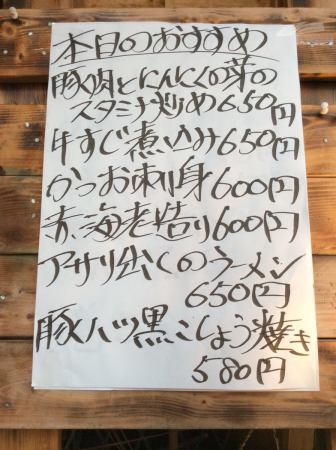 本日のおすすめ
豚肉とにんにくの芽の
スタミナ炒め650円
牛すじ煮込み650円
かつお刺身600円
赤海老造り600円
アサリ出くのラーメン
650円
豚ハツ黒こしょう焼き
580円